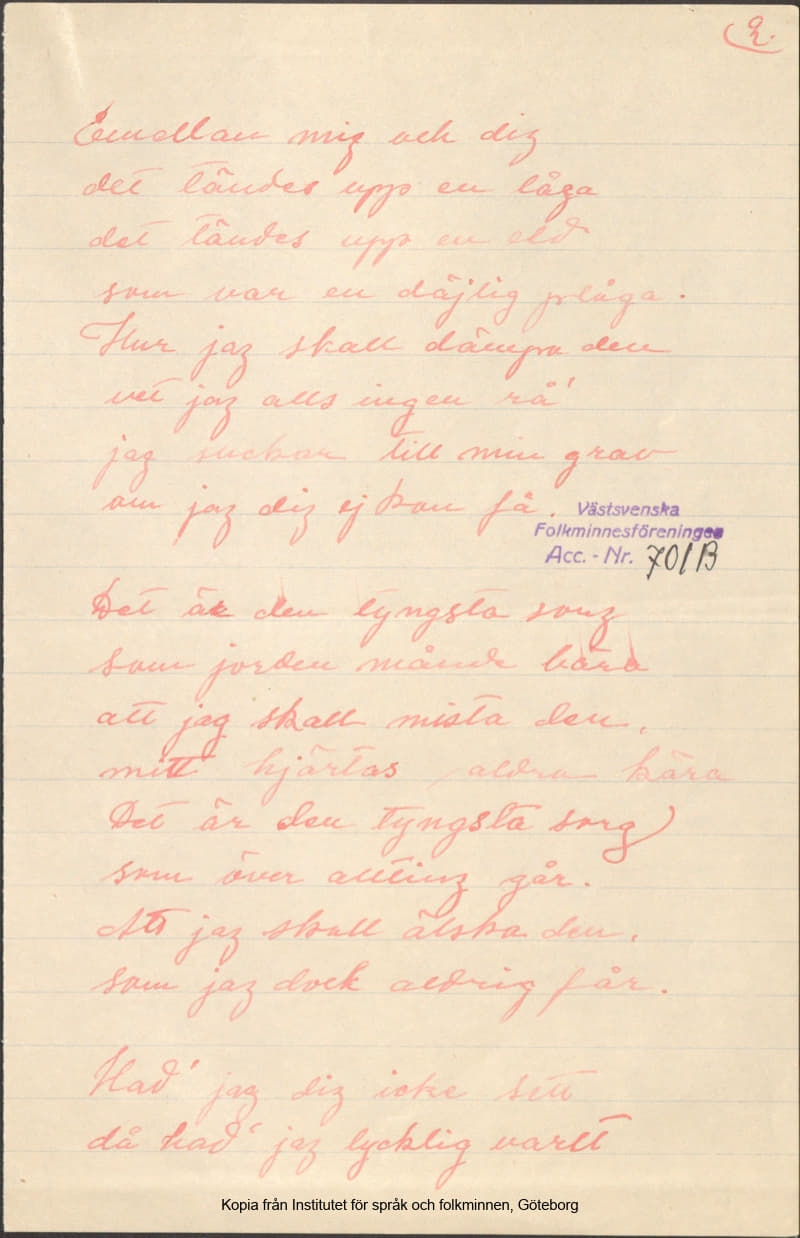 2.
Emellan mig och dig
det tändes upp en låga
det tändes upp en eld
som var en däjlig plåga.
Hur jag skall dämpa den
vet jag alls ingen rå'
jag suckar till min grav
om jag dig ej kan få.
Västsvenska
Folkminnesföreningen
Acc. - Nr. 701B
Det är den tyngsta sorg
som jorden månde bära
att jag skall mista den,
mitt hjärtas aldra kära
Det är den tyngsta sorg
som över allting går.
Att jag skall älska den,
som jag dock aldrig får.
Had' jag dig icke sett
då had' jag lycklig vartt
Kopia från Institutet för språk och folkminnen, Göteborg